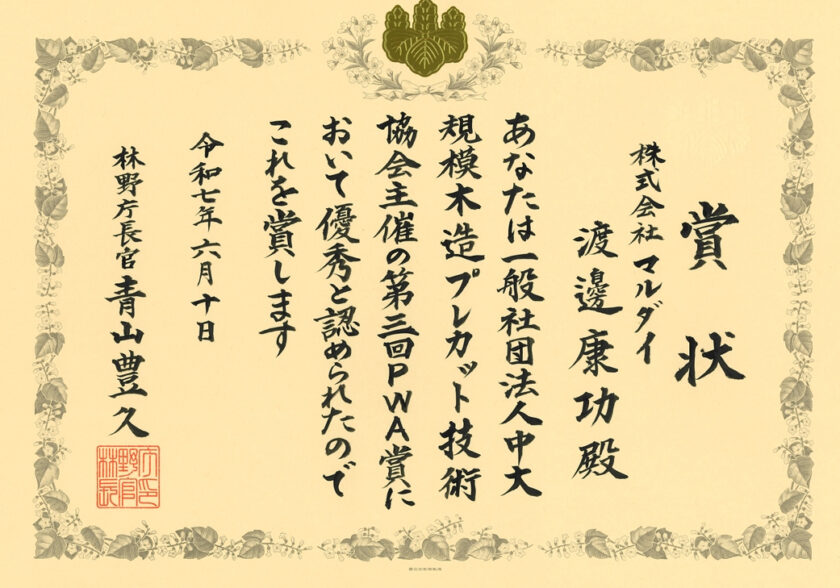 賞状
株式会社マルダイ
渡邊康功殿
あなたは一般社団法人中大
規模木造プレカット技術
協会主催の第三回PWA賞に
おいて優秀と認められたので
これを賞します
令和七年六月十日
林野庁長官青山豊久